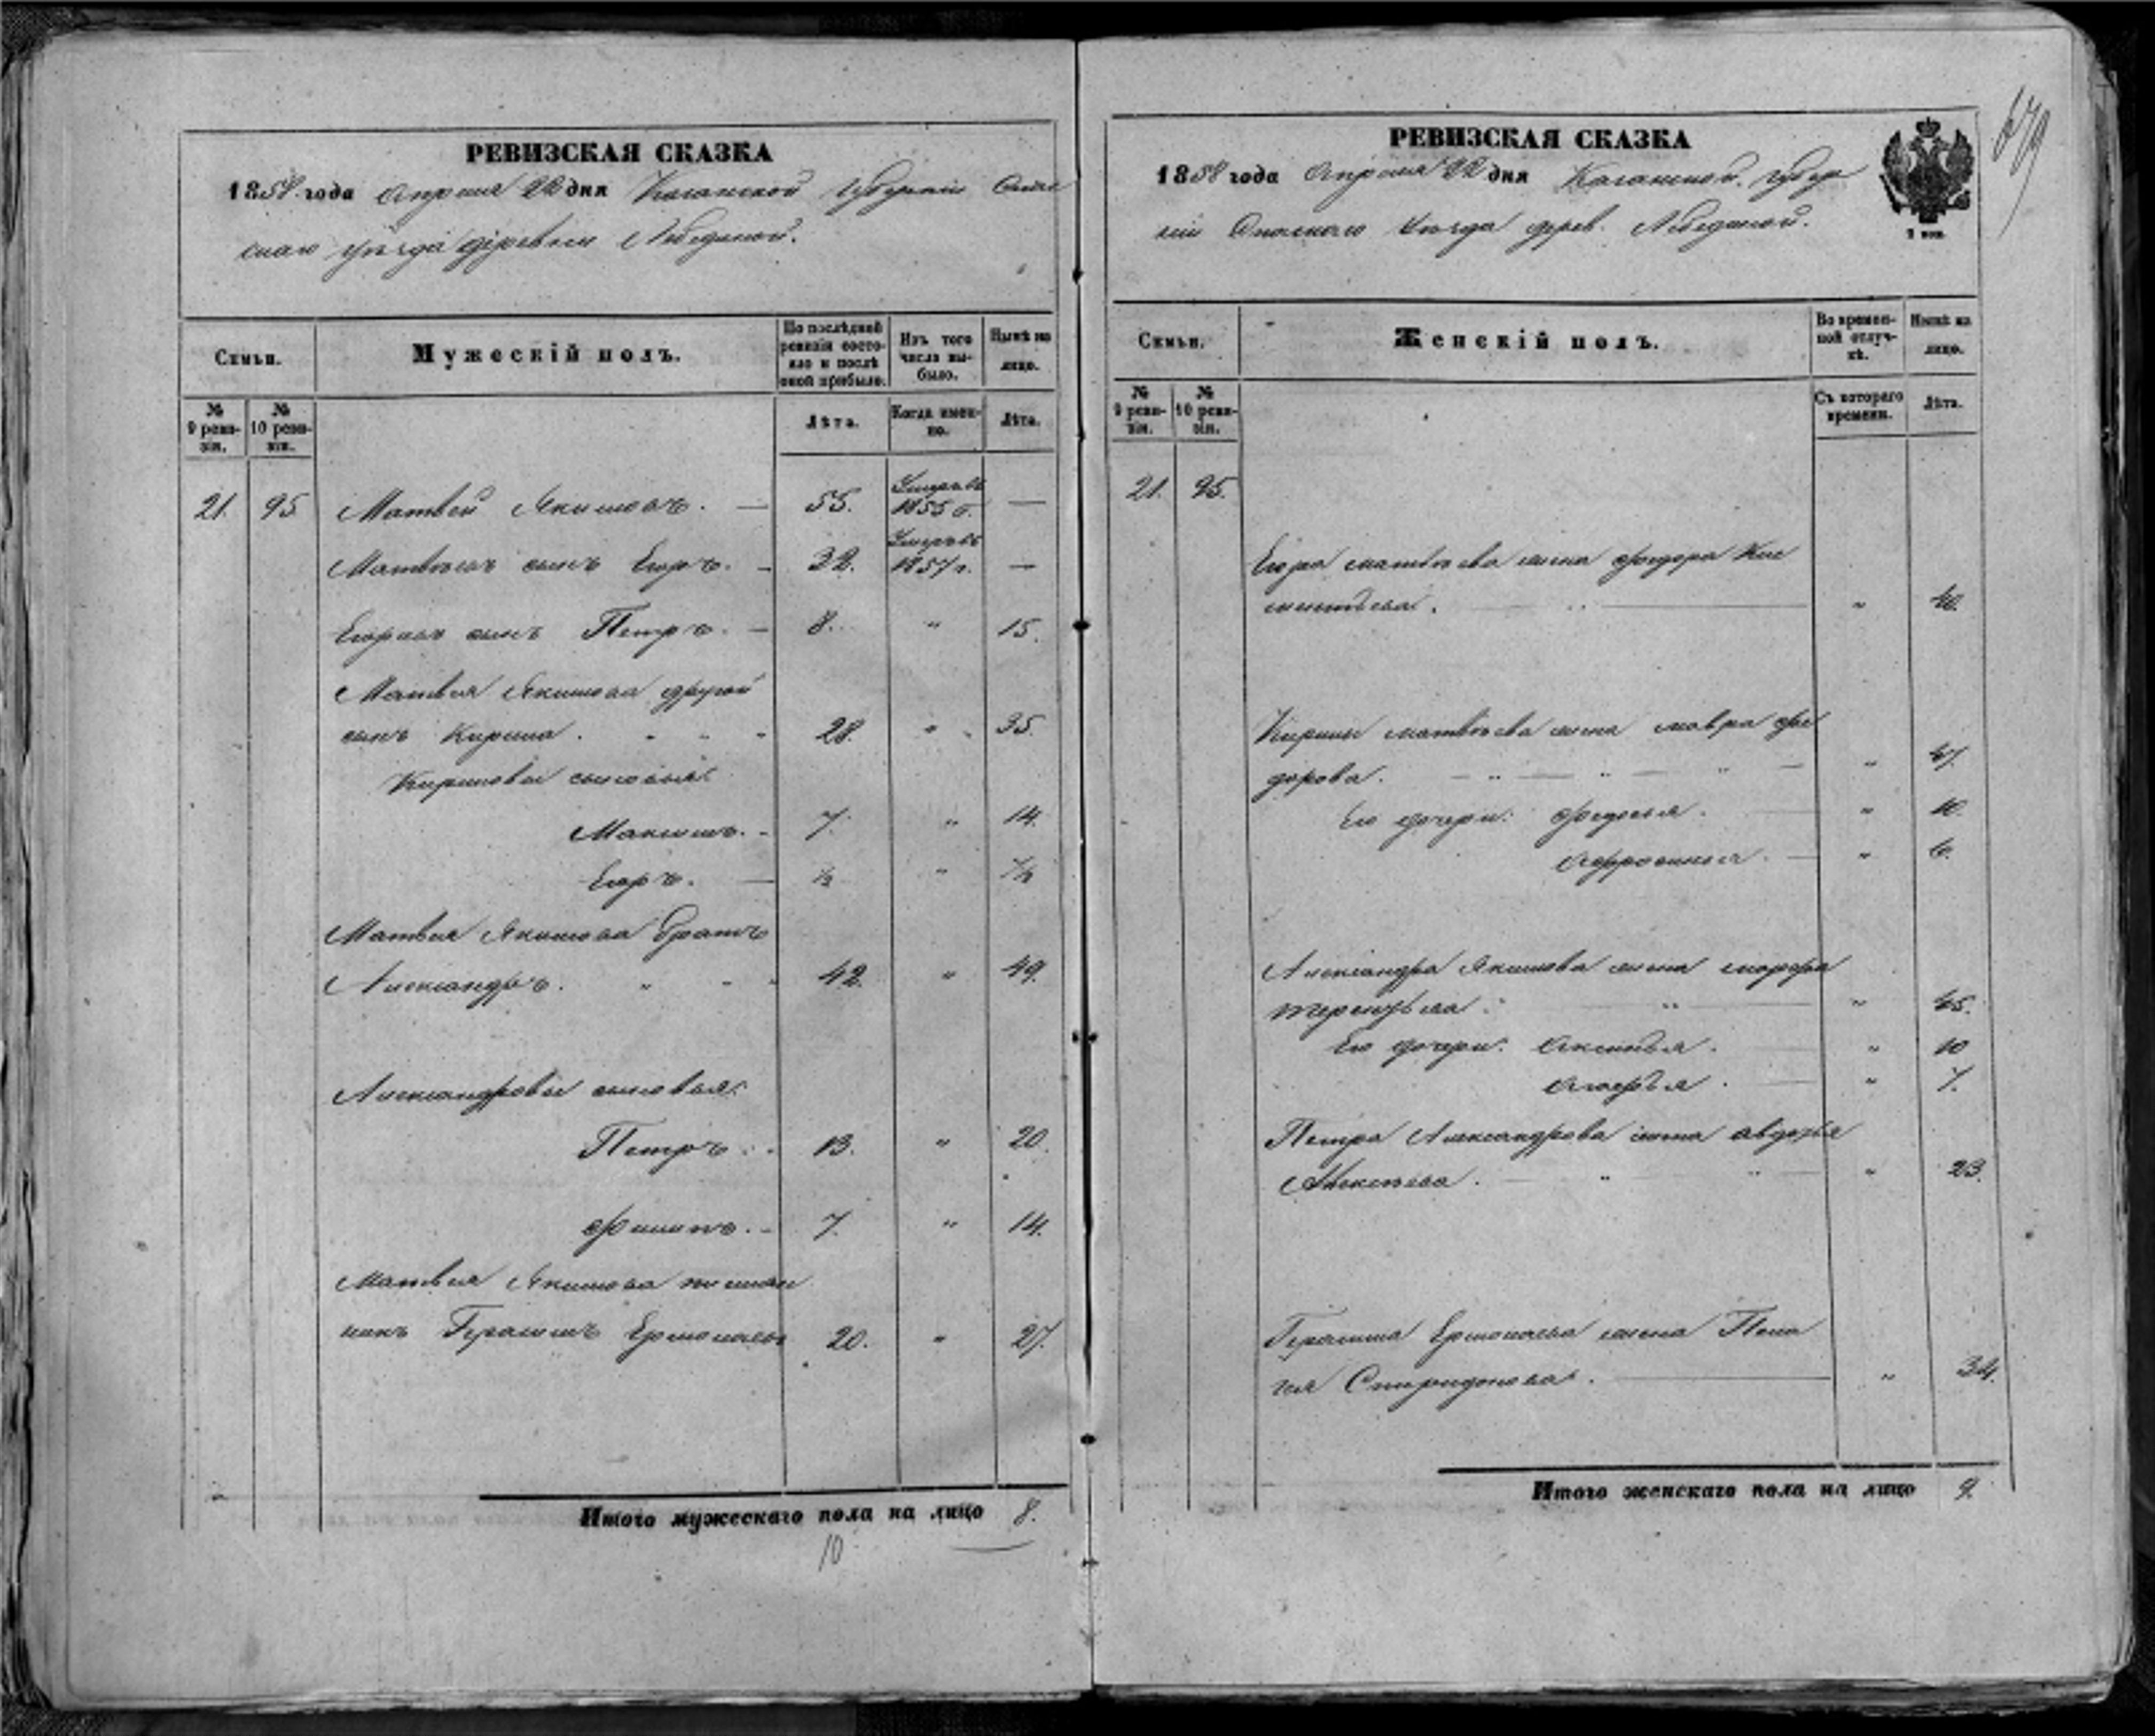 РЕВИЗСКАЯ СКАЗКА
1858 года Апреля 22 дня Казанской Губернии Спас
скаго уѣзда деревни Лебедяной.
Семьи.
Мужескій полъ.
По послѣдней ревизіи состояло и послѣ оной прибыло.
Изъ того числа выбыло.
Нынѣ на лицо.
№ 9 ревизіи.
№ 10 ревизіи.
Лѣта.
Когда именно.
Лѣта.
21. 95 Матвей Якимовъ. — 55. Умръ въ 1855 г. —
Матвѣевъ сынъ Егоръ. — 32. Умръ въ 1857 г. —
Егоровъ сынъ Петръ. — 8. " 15.
Матвея Якимова другой
сынъ Кирила. " " " 28. " 35.
Кириловы сыновья:
Максимъ. - 7. " 14.
Егоръ. — ½ " 7½
Матвея Якимова братъ
Александръ. " " " 42. " 49.
Александровы сыновья:
Петръ. - 13. " 20.
Филипъ. - 7. " 14.
Матвея Якимова племян
никъ Герасимъ Ермолаевъ 20. " 27.
Итого мужескаго пола на лицо 8.
10
РЕВИЗСКАЯ СКАЗКА
1858 года Апреля 22 дня Казанской Губер
ніи Спаскаго Уѣзда дерев. Лебедяной.
2 коп.
Семьи.
Женскій полъ.
Во временной отлучкѣ.
Нынѣ на лицо.
№ 9 ревизіи.
№ 10 ревизіи.
Съ котораго времени.
Лѣта.
21. 95.
Егора матвѣева жена федора
" 40.
Кирилы матвѣева жена мавра фе
дорова. — " — " — " — "
Его дочери: федосья. — " 10.
Афросинья. — " 6.
Александра Якимова жена марфа
терентьева. " " 45.
Его дочери: Аксинья. — " 10
— " 7.
Петра Александрова жена авдотья
Алексѣева. — " " — " 23.
Герасима Ермолаева жена Пела
гея Спиридонова. — " 34.
Итого женскаго пола на лицо 9.